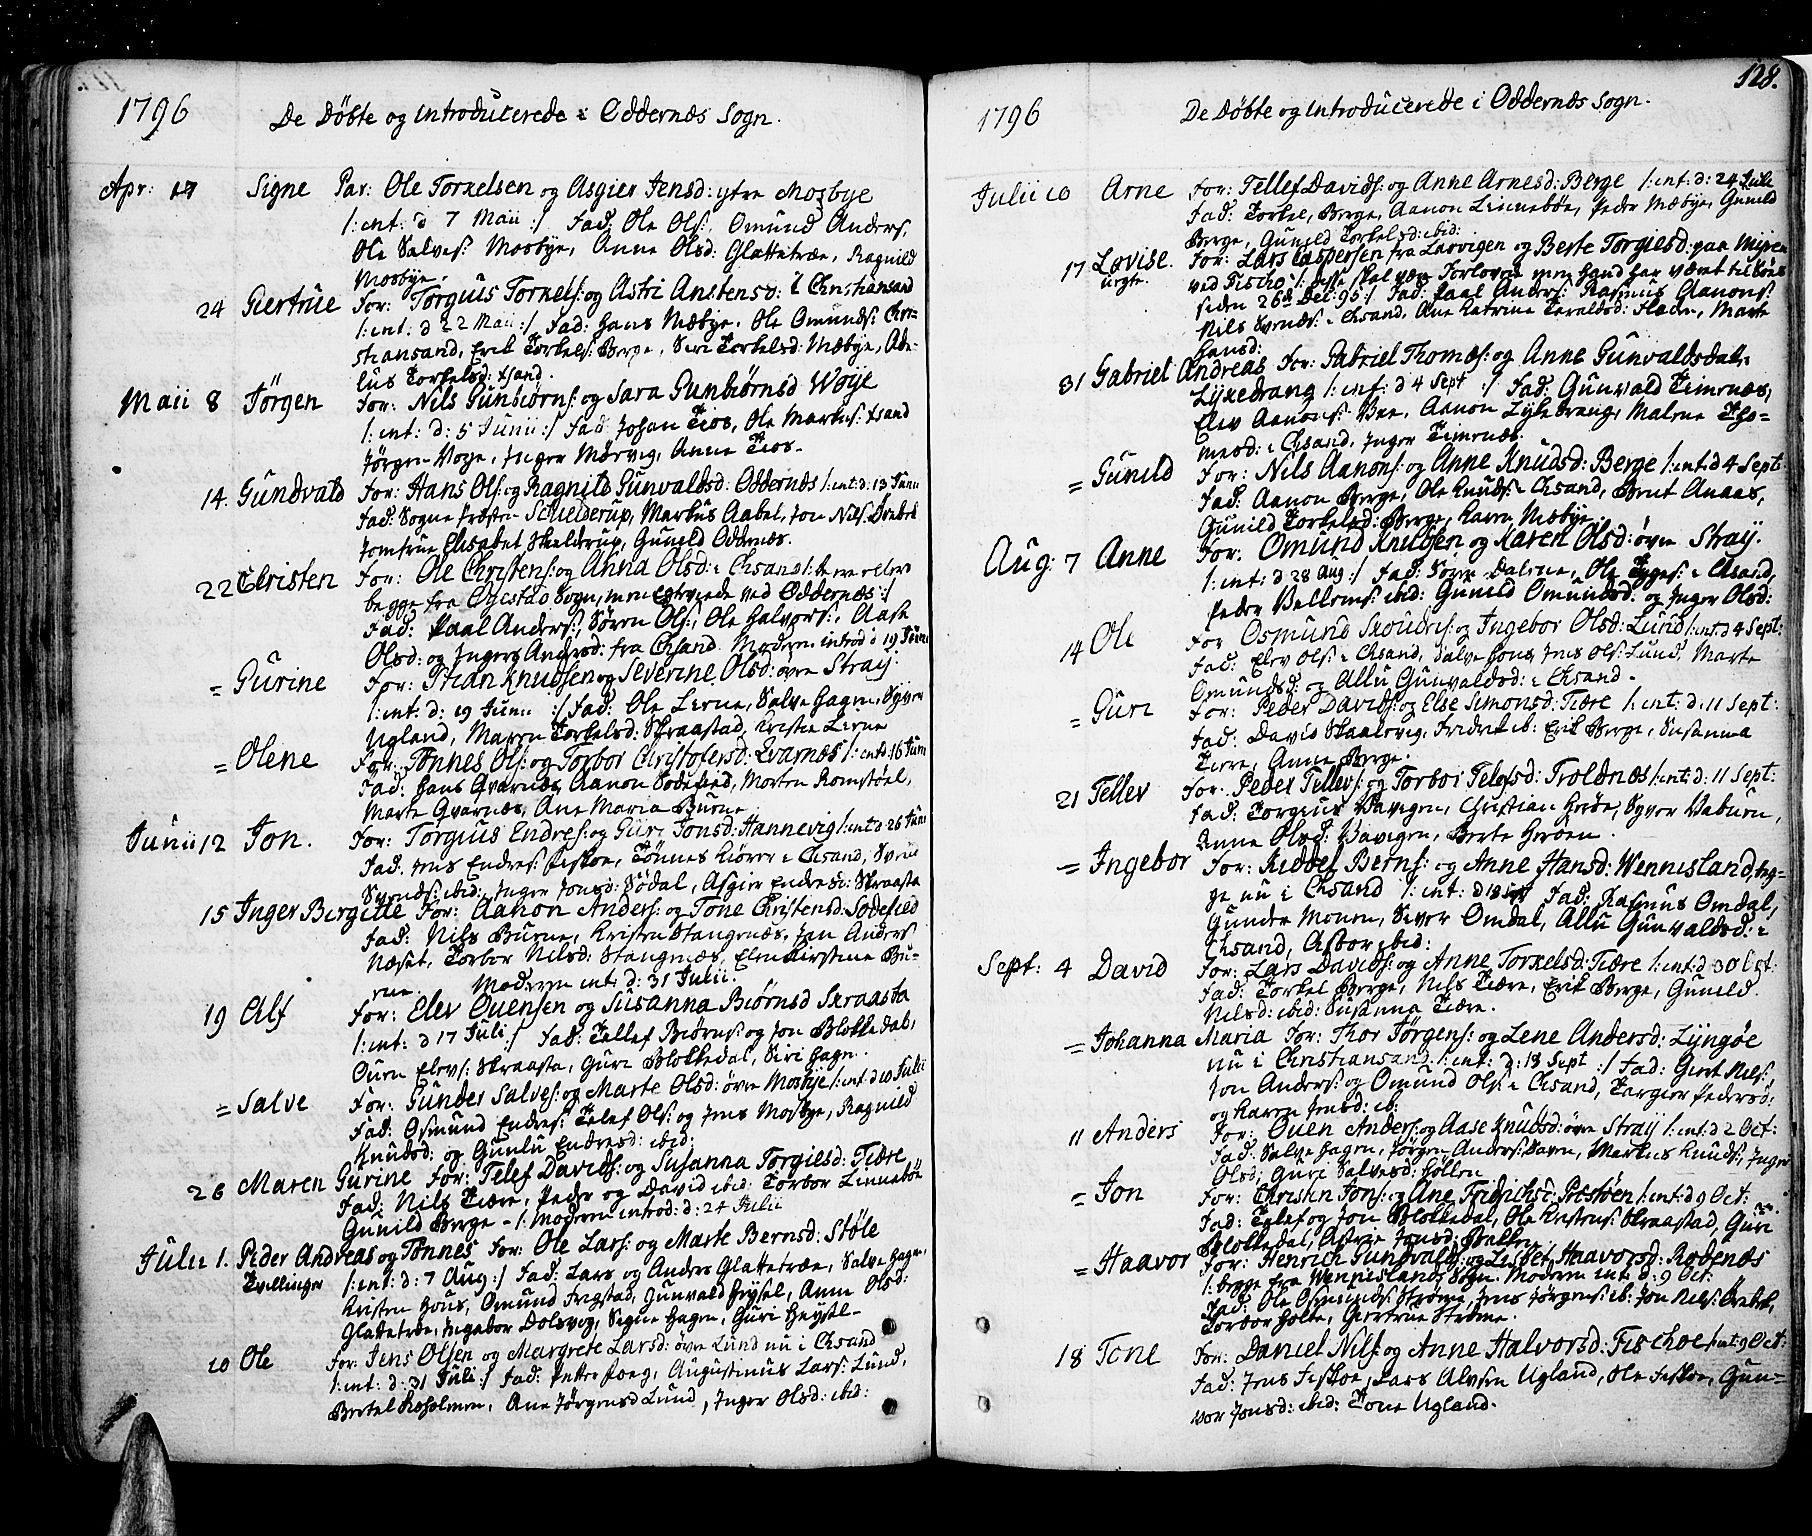 1796
De Døbte og Introducerede i Oddernæs Sogn.
Apr: 17 Signe Par: Ole Torkelsen og Asgier Jensd: ytre Mosbye
/: int: d 7 Maii :/ Fad: Ole Ols:, Omund Anders:
Ole Salves: Mosbye, Anne Olsd: Glattetræe, Ragnild
Mosbye.
24 Giertrue For: Torgius Torkels: og Astri Anstensd: i Christiansand
/: int: d 22 Maii :/ Fad: Hans Mæbye, Ole Omunds: Chri-
stiansand, Erik Torkels: Berge, Siri Torkelsd: Mæbye, Ade-
lus Torkelsd: Xsand.
Maii 8 Jörgen For: Nils Gunbiørns: og Sara Gunbiørnsd Woÿe
/: int: d: 5 Junii :/ Fad: Johan Tios, Ole Markus: Xsand
Jørgen Voye, Inger Mørvig, Anne Tios.
14. Gundvald For: Hans Ols: og Ragnild Gunvaldsd: Oddernæs /: int: d: 13 Junii
Fad: Sogne Præsten Schielderup, Markus Aabel, Jon Nils: Drebek
Jomfrue Elisabet Skielderup, Gunild Oddernæs.
22 Christen For: Ole Christens: og Anna Olsd: i Chsand /: de ere ellers
begge fra Øyestad Sogn, men egtviede ved Oddernæs :/
Fad: Paal Anders:, Søren Ols:, Ole Halvors:, Aase
Olsd: og Inger Andersd: fra Chsand. Moderen introd: d 19 Junii
= Gurine For: Stian Knudsen og Severine Olsd: øvre Straÿ.
/: int: d: 19 Junii :/ Fad: Ole Lerne, Salve Hagen, Syver
Ugland, Maren Torkelsd: Skraastad, Kirstie Lerne
= Olene For: Tønnes Ols: og Torbor Christofersd: Qvarnæs /: int d: 16 Junii
Fad: Hans Qvarnæs, Aanon Sødefied, Morten Romstøel,
Marte Qvarnæs, Ane Maria Burne
Junii 12 Jon. For: Torgius Endres: og Guri Jonsd: Hannevig /: int: d 26 Junii
Fad: Jens Endres: Fiskoe, Tønnes Kiørre i Chsand, Svend
Svends: ibid:, Inger Jonsd: Sødal, Asgier Endresd: Skraasta
15 Inger Birgitte For: Aanon Anders: og Tone Christensd: Sødefied
Fad: Nils Burne, Kristen Stangenæs, Jon Anders:
Næset, Torbor Nilsd: Stangenæs, Elen Kirstine Bu-
rne. Moderen int: d: 31 Julii.
19 Alf For: Elev Ouensen og Susanna Biørnsd Skraasta
/: int: d 17 Juli :/ Fad: Tellef Biørns: og Jon Blokkedal,
Ouen Elevs: Skraasta, Guri Blokkedal, Siri Hagen.
= Salve For: Gunder Salves: og Marte Olsd: øvre Mosbye /: int d 10 Julii
Fad: Osmund Endres: Telef Ols: og Jens Mosbye, Ragnild
Knudsd: og Gunlu Endresd: ibid:
26 Maren Gurine For: Telef Davids: og Susanna Torgiesd: Tiære
Fad: Nils Tiære, Peder og David ibid: Torbor Linnebøe
Gunild Berge - /: Moderen introd: d: 24 Julii
Julii 1. Peder Andreas og Tønnes For: Ole Lars: og Marte Bernsd: Støle
Tvillinger /: int: d: 7 Aug :/ Fad: Lars og Anders Glattetræe, Salve Hagen,
Kristen Hous, Omund Frigstad, Gunvald Heysel, Anne Olsd:
Glattetræe, Ingebor Dolsveg, Signe Hagen, Guri Heysel-
10 Ole For: Jens Olsen og Margrete Larsd: øvre Lund nu i Chsand
/: int: d: 31 Juli :/ Fad: Petter Poeg, Augustinus Lars: Lund,
Bertel Roholmen, Ane Jørgensd Lund, Inger Olsd: ibid:
128.
1796
De Døbte og Introducerede i Oddernæs Sogn.
Julii 10 Arne For: Tellef Davids: og Anne Arnesd: Berge /: int: d: 24 Juli
Fad: Torkel, Berge, Aanon Linnebøe, Peder Mæbye, Gunild
Berge, Gunild Torkelsd: ibid:
17 Lovise. For: Lars Caspersen fra Laovigen og Berte Torgiesd: paa Myren
uegte. ved Fiskaa /: disse skal være Forlovede men hand har været til Søes
siden 26de Dec: 95 :/ Fad: Paal Anders: Rasmus Aanons:
Nils Svends: i Chsand, Ane Katrine Teralds: Hladen, Marte
Hansd:
31 Gabriel Andreas For: Gabriel Thomes: og Anne Gunvaldsdatt:
Lÿkedrang /: int: d 4 Sept :/ Fad: Gunvald Timenæs,
Elev Aanons: Vee, Aanon Lykedrang, Malene Tho-
mesd: i Chsand, Inger Timenæs.
= Gunild For: Nils Aanons: og Anne Knudsd: Berge /: int: d 4 Sept:
Fad: Aanon Berge, Ole Knuds: i Chsand, Berit Anaas,
Gunild Torkelsd: Berge, Karen Mæbye.
Aug: 7 Anne For: Omund Knudsen og Karen Olsd: øvre Straÿ.
/: int: d 28 Aug :/ Fad: Søren Dalene, Ole Tygeś: i Chsand,
Peder Vellems: ibid: Gunild Omundsd: og Inger Olsd:
14 Ole For: Osmund Skouens: og Ingebor Olsd: Lund /: int: d 4 Sept:
Fad: Elev Ols: i Chsand, Salve Hous, Jens Ols: Lund, Marte
Omundsd: og Allu Gunvaldsd: i Chsand.
= Guri For: Peder Davids: og Else Simonsd: Tiære /: int: d: 11 Sept:
Fad: David Skaalevig, Fridrik ib: Erik Berge, Susanna
Tiere, Anne Berge.
21 Tellev For: Peder Tellevs: og Torbor Telefsd: Troldnæs /: int: d: 11 Sept:
Fad: Torgius Vavigen, Christian Herøe, Syver Vaburn,
Anne Olsd: Vavigen, Berte Herøen.
= Ingebor For: Reddel Berns: og Anne Hansd: Wennisland, Hæg-
ge nu i Chsand /: int: d 18 Sept Fad: Rasmus Omdal,
Gunder Monen, Siver Omdal, Allu Gunvaldsd: i
Chsand, Asbor ibid:
Sept: 4 David For: Lars Davids: og Anne Torkelsd: Tiære /: int: d: 30 Oct:
Fad: Torkel Berge, Nils Tiære, Erik Berge, Gunild
Nilsd: ibid: Susanna Tiære.
= Johanna Maria For: Thor Jørgens: og Lene Andersd: Lÿngøe
nu i Christiansand /: int: d: 18 Sept :/ Fad: Girrt Nils:
Jon Anders: og Omund Ols: i Chsand, Targier Pedersd:
og Karen Jensd: ib:
11 Anders For: Ouen Anders: og Aase Knudsd: øvre Straÿ /: int: d 2 Oct:
Fad: Salve Hagen, Jørgen Anders: Savn, Markus Knuds:, Inger
Olsd:, Guri Salvesd: Høllen
= Jon For: Christen Jons: og Ane Fridrichsd: Prestøen /: int: d 9 Oct:
Fad: Telef og Jon Blokkedal, Ole Kristens: Skraastad, Guri
Blokkedal, Asgier Jonsd: Stallen.
= Haavor For: Henrich Gundvalds: og Lisbet Haavorsd: Rødenæs
/: begge fra Wennisland Sogn. Moderen int: d: 9 Oct:
Fad: Ole Osmunds: Strømø, Jens Jørgens: ib: Jon Nils: Drebek,
Torbor Holte, Giertrue Strømø.
18 Tone For: Daniel Nils: og Anne Halvorsd: Fischoe /: int 9 Oct:
Fad: Jens Fiskoe, Lars Alvsen Ugland, Ole Fiskoe, Gun-
vor Jonsd: ibid: Tone Ugland.